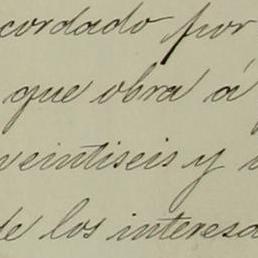 cordado por
que obra á
veintiseis y
de los interesa